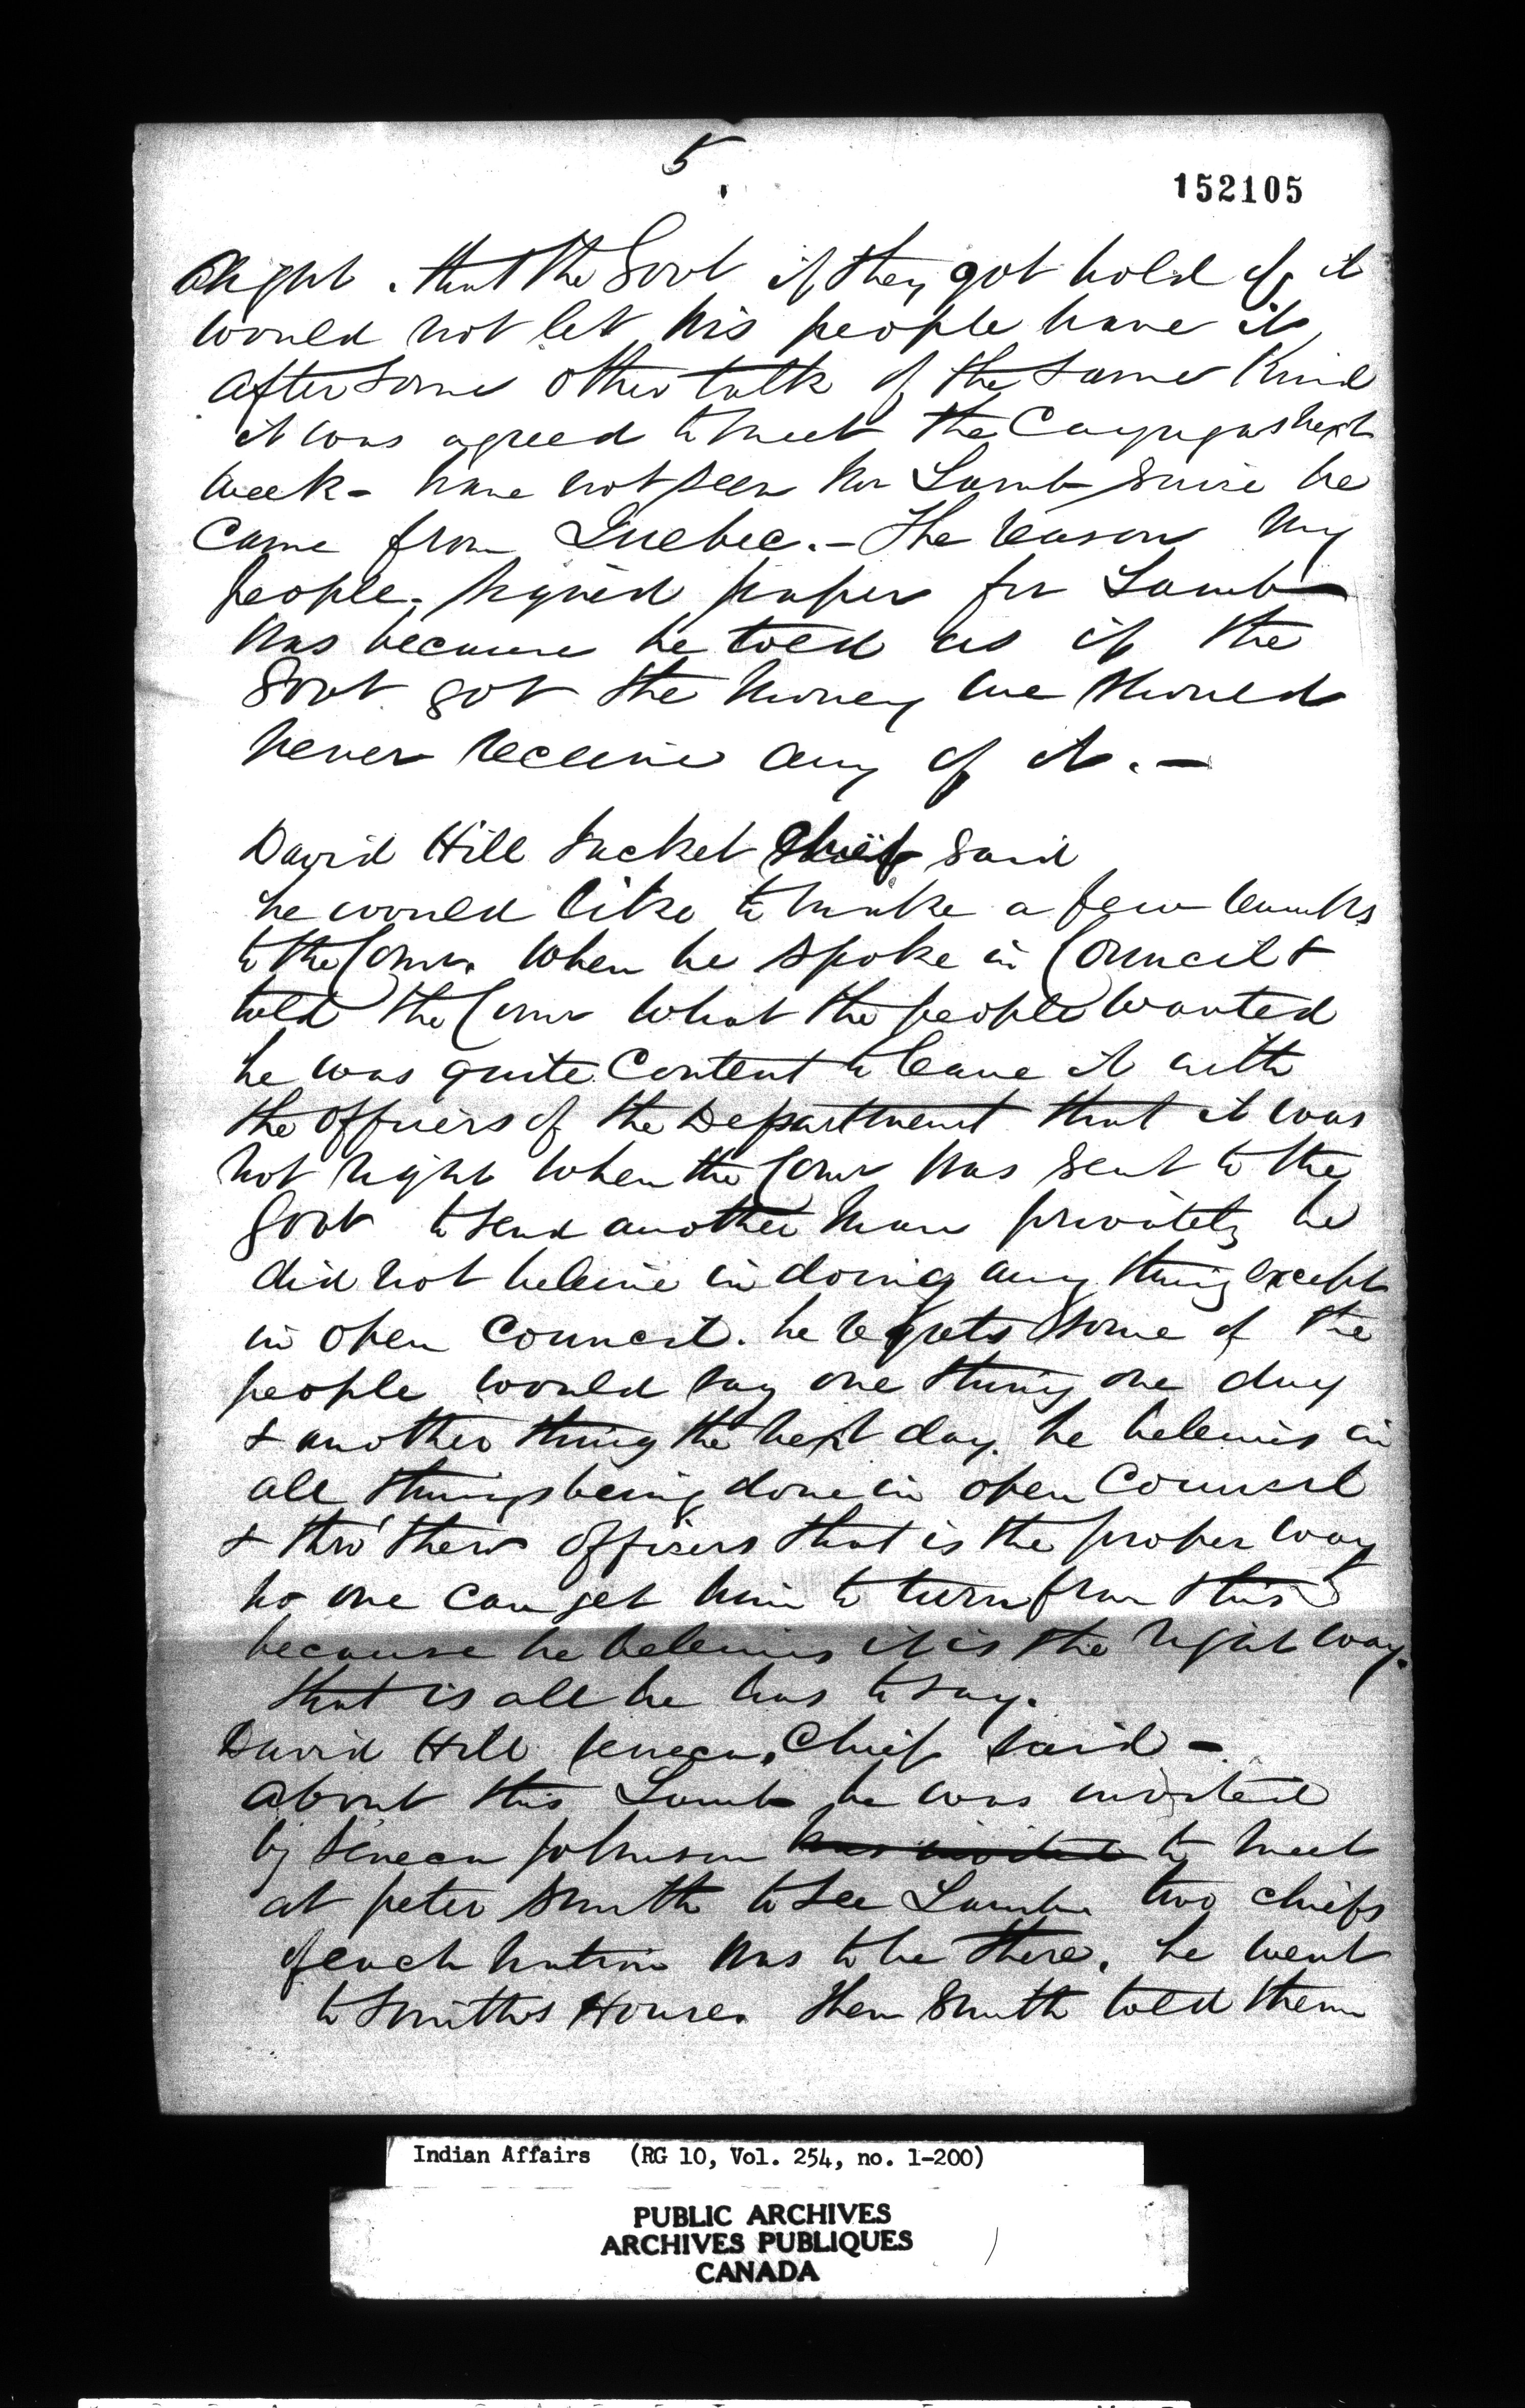 5
152105
right. that the Govt if they got hold of it
would not let his people have it
after some other talk of the same Kind
it was agreed to meet the Cayugas next
week - have not seen Mr Lamb since he
Came from Quebec. - The reason my
people signed paper for Lamb
was because he told us if the
Govt got the money we should
never receive any of it. -
David Hill Jacket Chief said
he would like to make a few remarks
to the Comr. When he spoke in Council &
told the Comr what the people wanted
he was quite Content to leave it with
the officers of the Department that it was
not right when the Comr was sent to the
Govt to send another man privately he
did not believe in doing any thing except
in open Council. he regrets some of the
people would say one thing one day
& another thing the next day. he believes in
all things being done in open Council
& thro' their officers that is the proper way
no one can get him to turn from this
because he believes it is the right way.
that is all he has to say.
David Hill Seneca, Chief said -
about this Lamb he was invited
by Seneca Johnson was invited to meet
at peter Smith to see Lamb two chiefs
of each nation was to be there. he went
to Smiths House. then Smith told them
Indian Affairs (RG 10, Vol. 254, no. 1-200)
PUBLIC ARCHIVES
ARCHIVES PUBLIQUES
CANADA